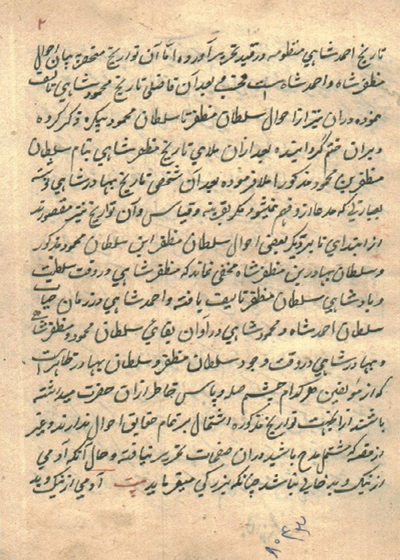 ۲
تاریخ احمد شاهی منظومه در قید تحریر آورده اما آن تواریخ منحصر به بیان احوال
مظفر شاه و احمد شاه است بعد آن فاضلی تاریخ محمود شاهی تالیف
نموده در آن نیز از احوال سلطان مظفر تا سلطان محمود بیکره ذکر کرده
و بر آن ختم گردانیده بعد از آن ملای تاریخ مظفر شاهی بنام سلطان
مظفر بن محمود مذکور املا فرموده بعد آن شخصی تاریخ بهادر شاهی نوشته
بعبارتی که مدعا از و فهم نمیشود مگر بقرینه و قیاس و آن تواریخ نیز مقصورند
از ابتدای تا بر دیگر بعضی احوال سلطان مظفر ابن سلطان محمود مذکور
و سلطان بهادر بن مظفر شاه مخفی نماند که مظفر شاهی در وقت سلطنت
و بادشاهی سلطان مظفر تالیف یافته و احمد شاهی در زمان حیات
سلطان احمد شاه و محمود شاهی در اوان بقای سلطان محمود و مظفر شاه
و بهادر شاهی در وقت وجود سلطان مظفر و سلطان بهادر ظاهر است
که از مؤلفین هر کدام چشم صله و پاس خاطر از آن حضرت میداشته
باشند از اینجهت تواریخ مذکوره اشتمال بر تمام حقایق احوال ندارند و بغیر
از فقره که مشتمل مدح باشد در آن صفحات تحریر نیافته و حال آنکه آدمی
از نیک و بد خالی نباشد چنانکه بزرگی میفرماید بیت آدمی از نیک و بد